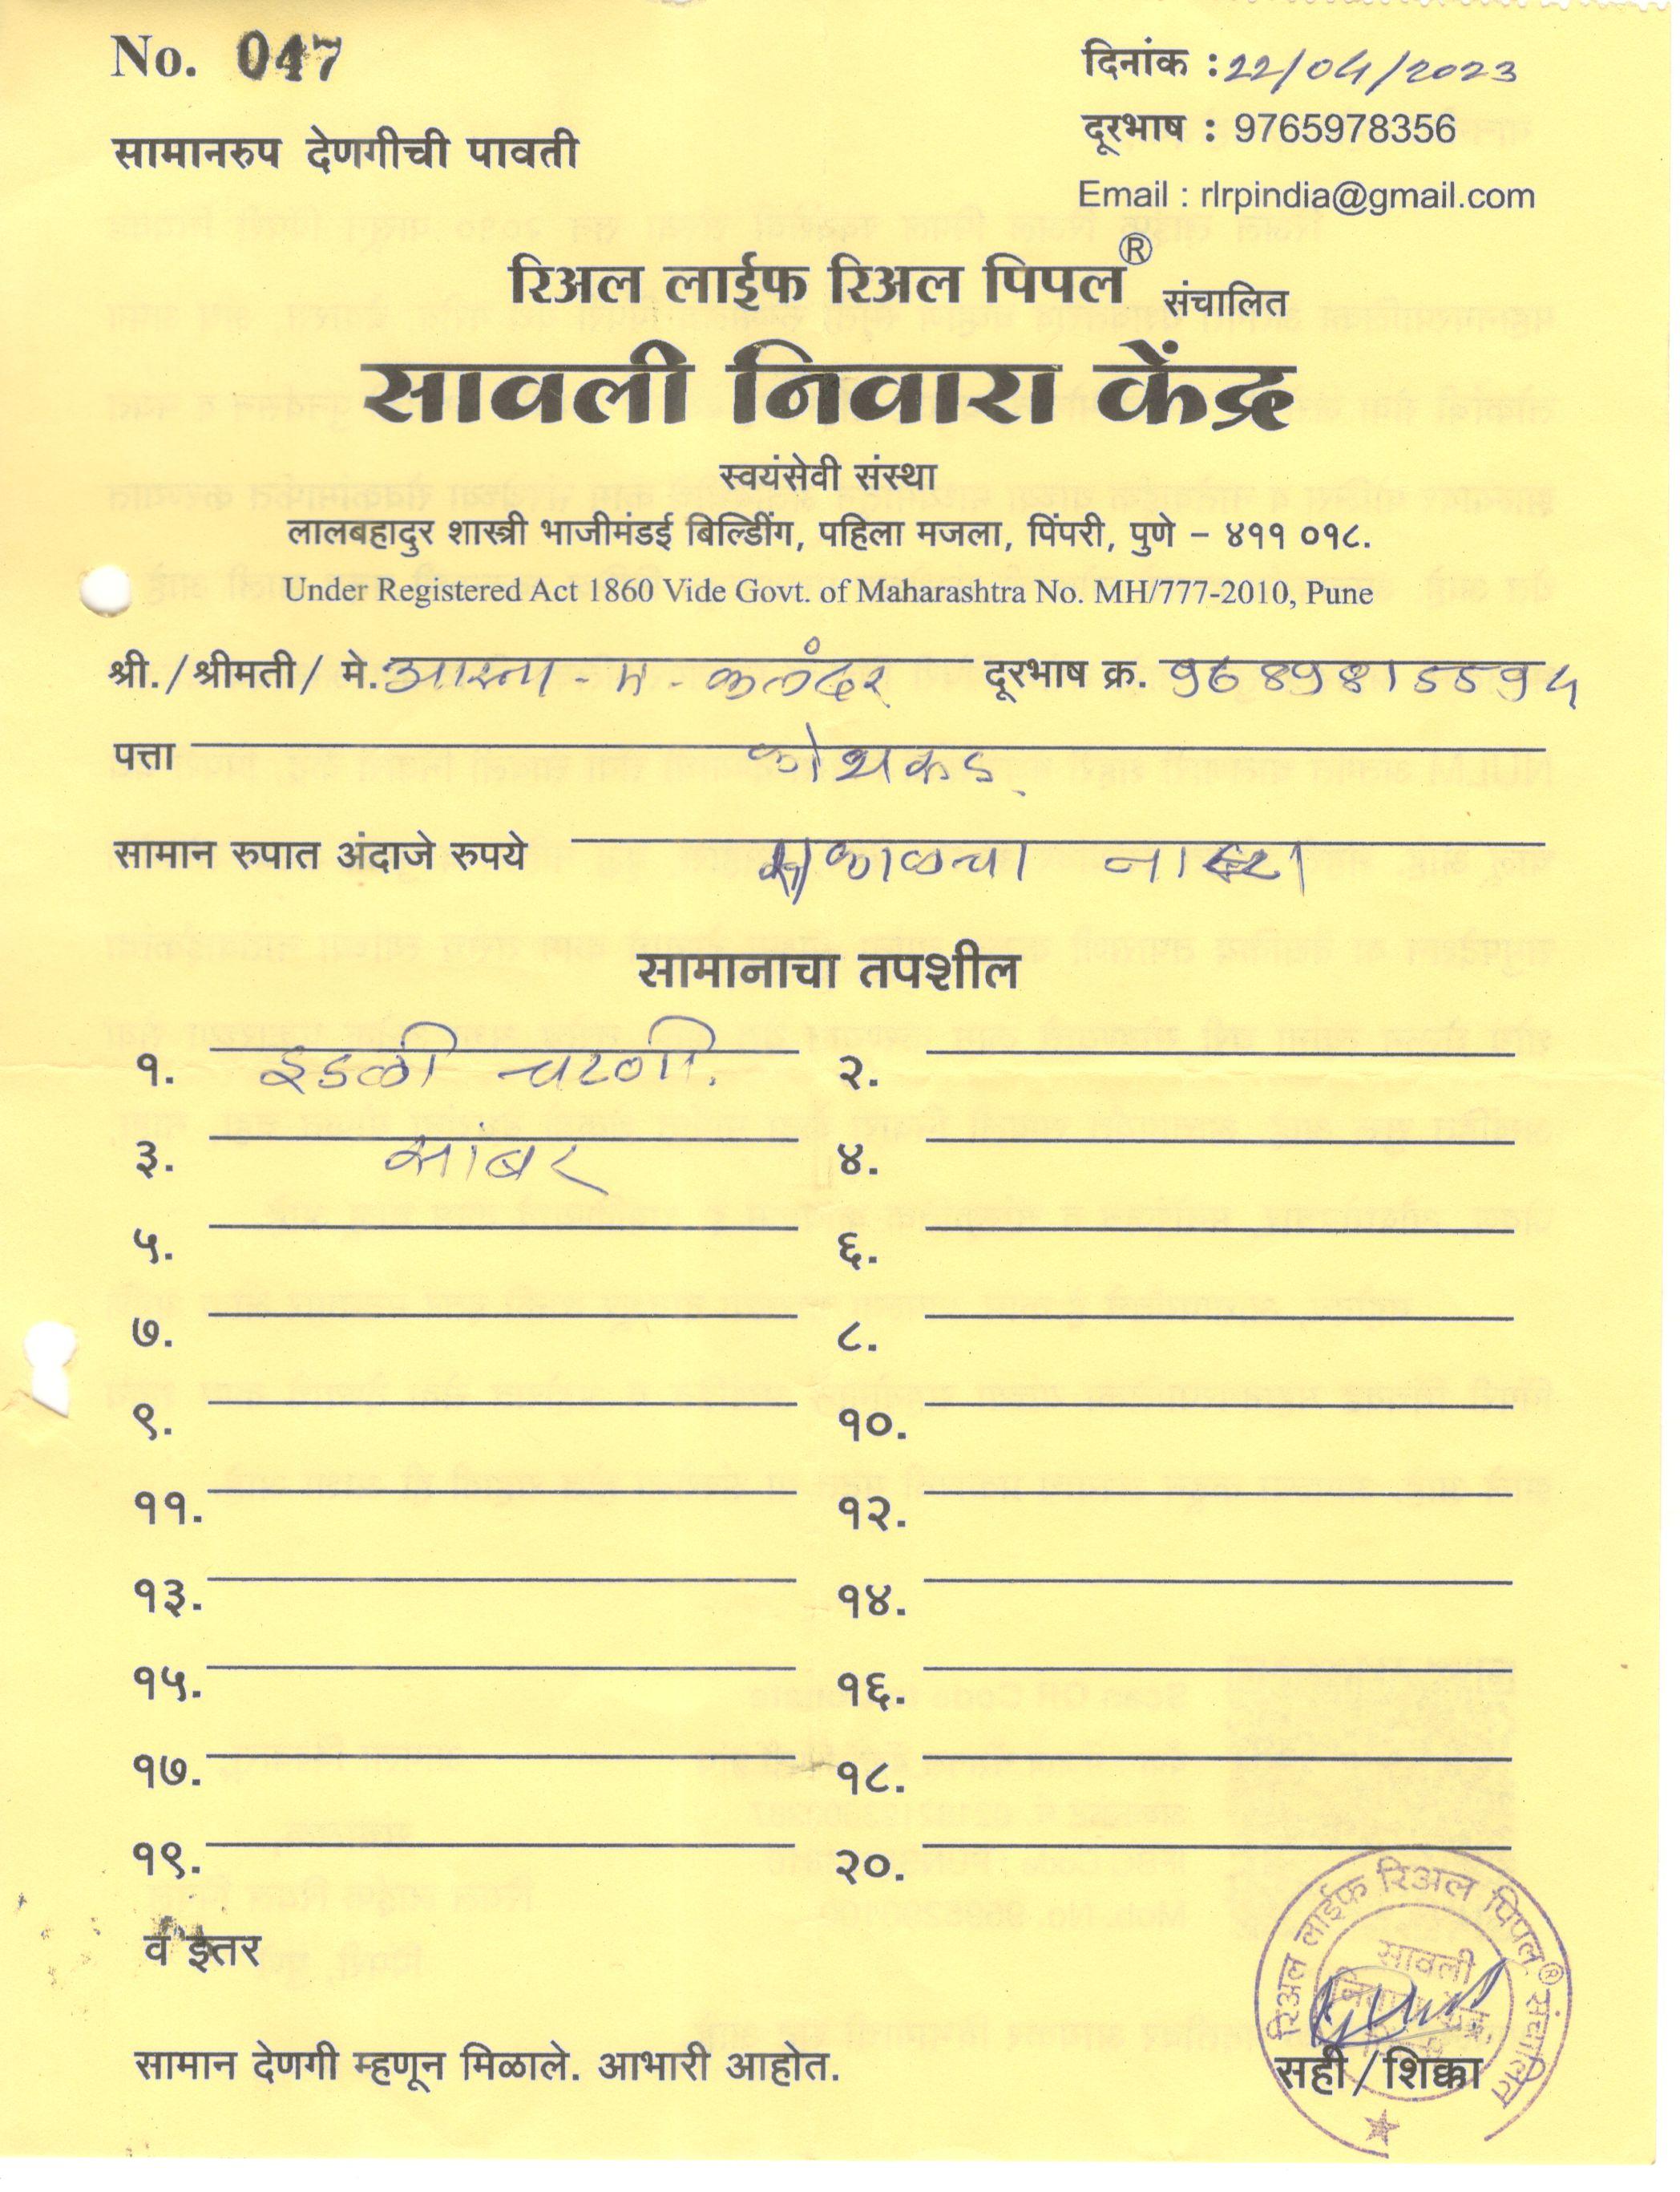 No. 047
दिनांक : 22/04/2023
सामानरुप देणगीची पावती
दूरभाष : 9765978356
Email : rlrpindia@gmail.com
रिअल लाईफ रिअल पिपल® संचालित
सावली निवारा केंद्र
स्वयंसेवी संस्था
लालबहादुर शास्त्री भाजीमंडई बिल्डिींग, पहिला मजला, पिंपरी, पुणे – ४११ ०१८.
Under Registered Act 1860 Vide Govt. of Maharashtra No. MH/777-2010, Pune
श्री./श्रीमती/ मे. - म - कलंदर दूरभाष क्र.
पत्ता
सामान रुपात अंदाजे रुपये सकाळचा नाष्टा
सामानाचा तपशील
१. इडली चटणी. २.
३. सांबर ४.
५. ६.
७. ८.
९. १०.
११. १२.
१३. १४.
१५. १६.
१७. १८.
१९. २०.
व इतर
सामान देणगी म्हणून मिळाले. आभारी आहोत.
सही/शिक्का
रिअल लाईफ रिअल पिपल® संचालित
सावली